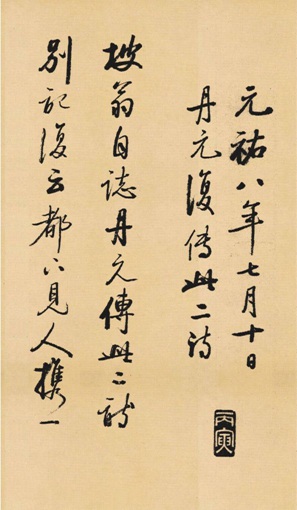 元祐八年七月十日
丹元復傳此二詩
坡翁自誌丹元傳此二詩
別記復云都下見人攜一
丙寅